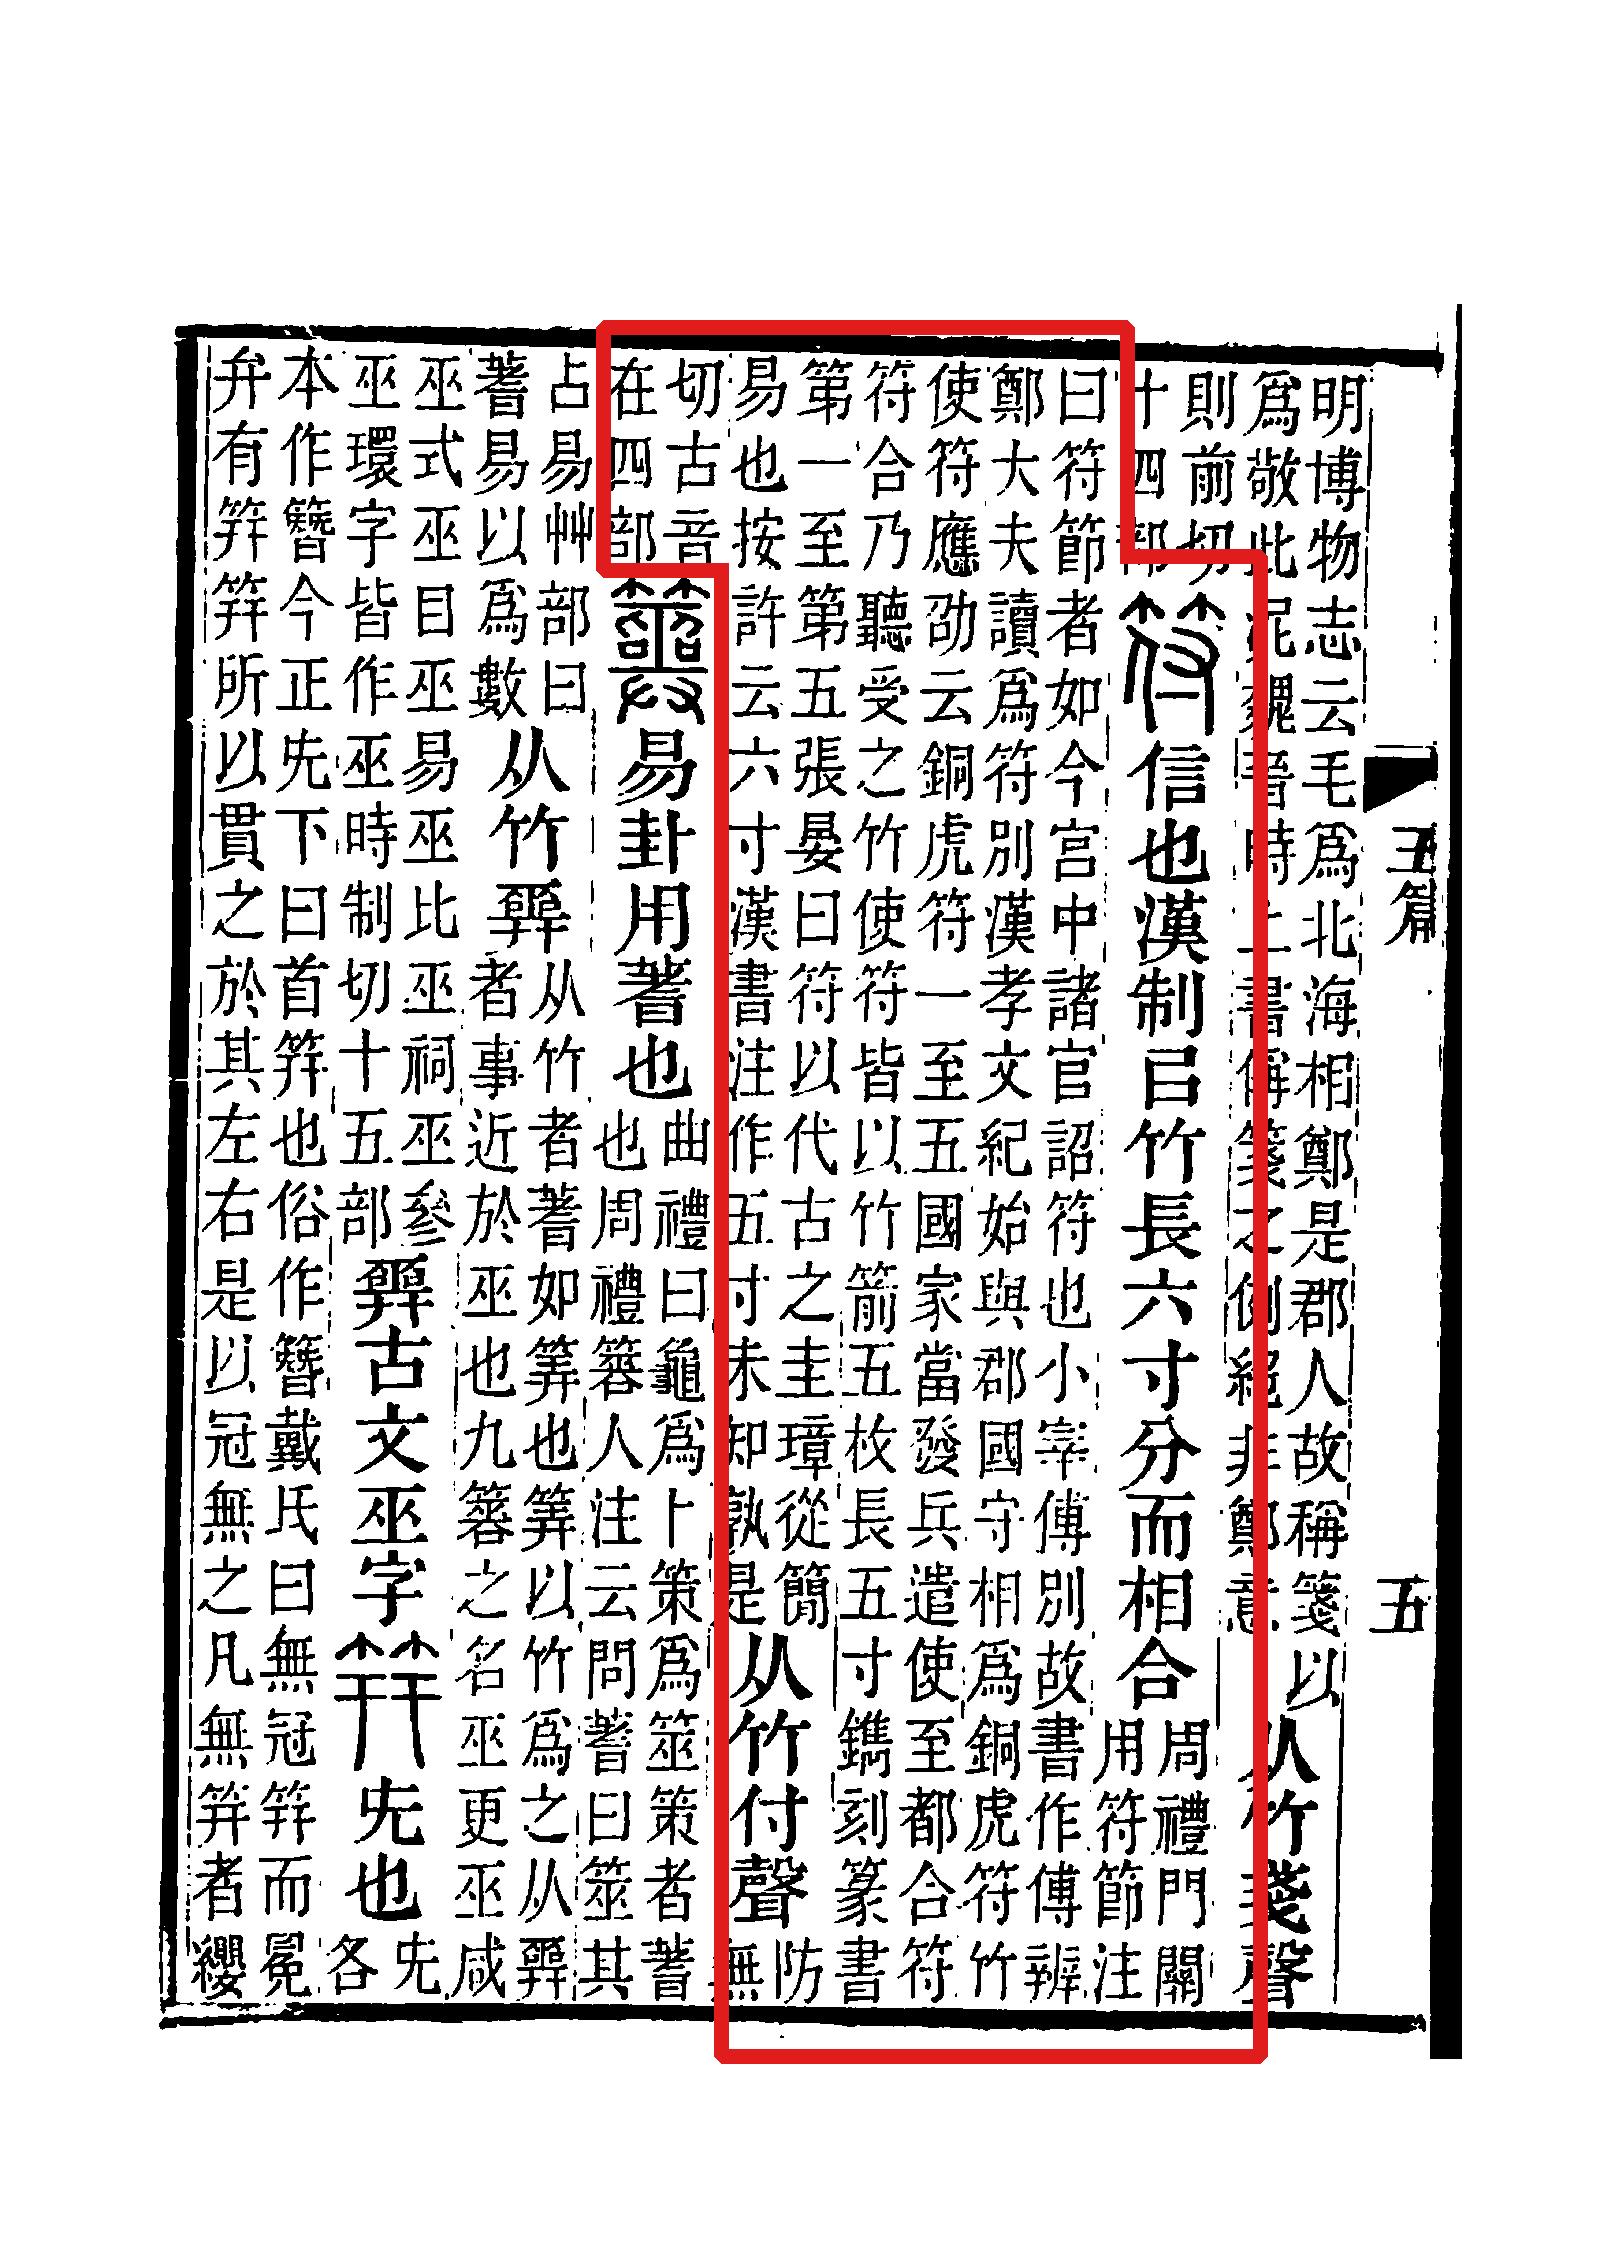 明博物志云毛爲北海相鄭是郡人故稱箋以
爲敬此泥魏晉時上書偁箋之例絕非鄭意
从竹戔聲
則前切
十四部
符
信也漢制㠯竹長六寸分而相合
周禮門關
用符節注
曰符節者如今宮中諸官詔符也小宰傅別故書作傅辨
鄭大夫讀爲符別漢孝文紀始與郡國守相爲銅虎符竹
使符應劭云銅虎符一至五國家當發兵遣使至都合符
符合乃聽受之竹使符皆以竹箭五枚長五寸鐫刻篆書
第一至第五張晏曰符以代古之圭璋從簡
易也按許云六寸漢書注作五寸未知孰是
从竹付聲
防
無
切古音
在四部
簭
易卦用蓍也
曲禮曰龜爲卜策爲筮策者蓍
也周禮簭人注云問蓍曰筮其
占易艸部曰
蓍易以爲數
从竹𢍮
从竹者蓍如筭也筭以竹爲之从𢍮
者事近於巫也九簭之名巫更巫咸
巫式巫目巫易巫比巫祠巫參
巫環字皆作巫時制切十五部
𢍮古文巫字
笄
兂也
兂
各
本作簪今正兂下曰首笄也俗作簪戴氏曰無冠笄而冕
弁有笄笄所以貫之於其左右是以冠無之凡無笄者纓
五篇
五